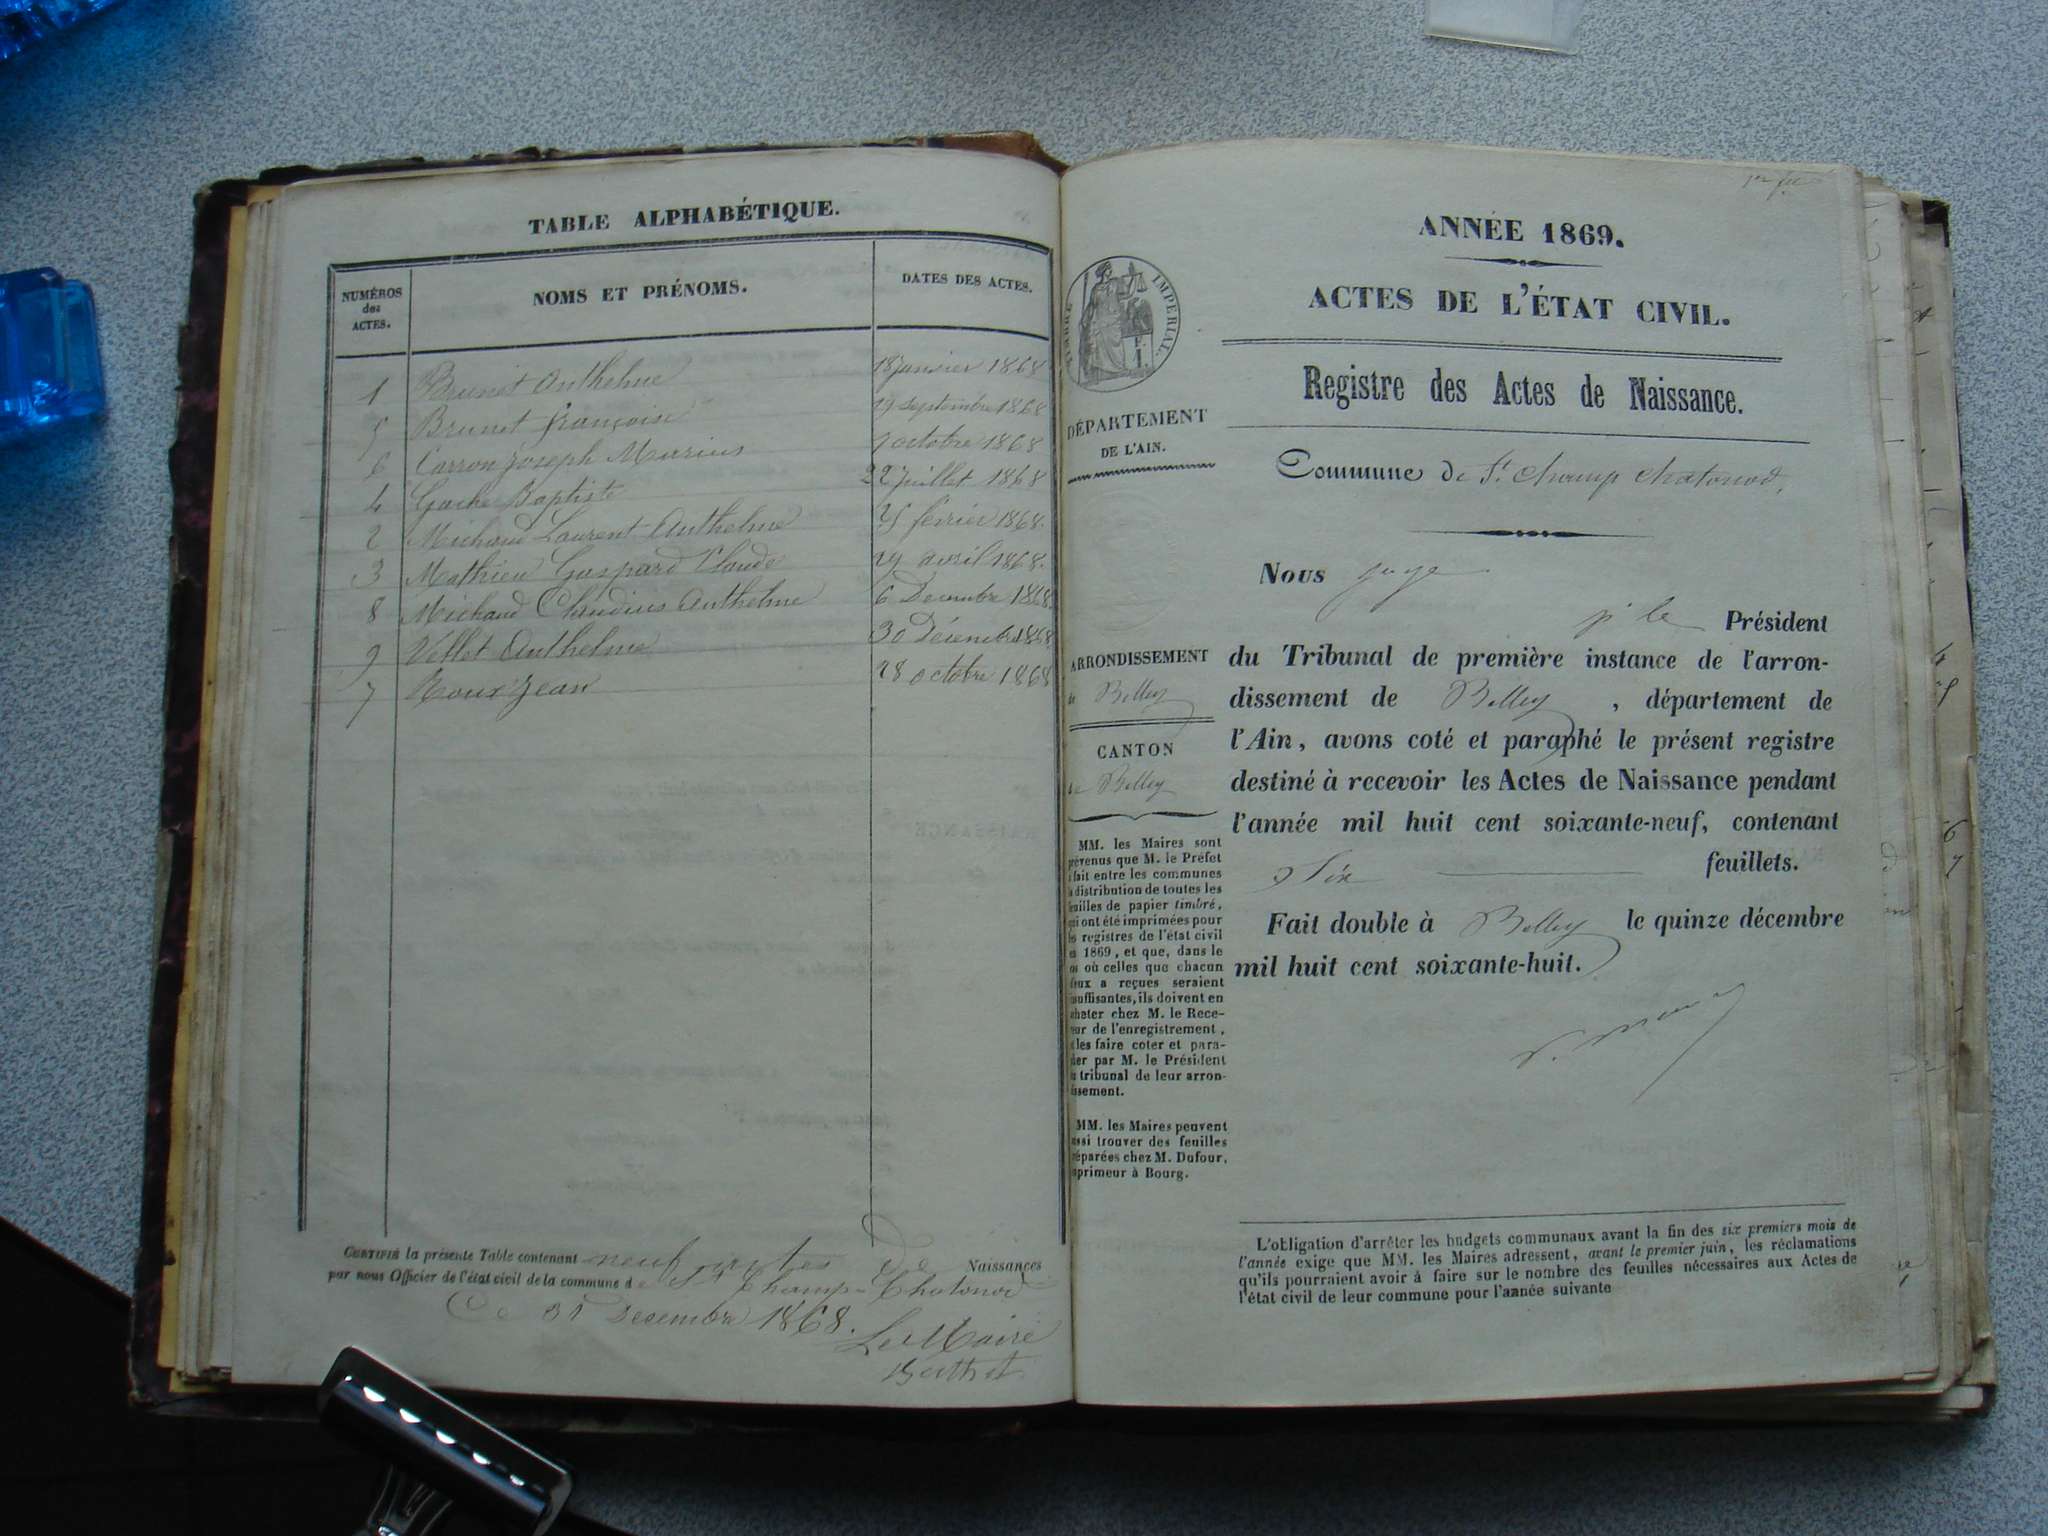 TABLE ALPHABÉTIQUE.
NUMÉROS des ACTES.
NOMS ET PRÉNOMS.
DATES DES ACTES.
1 Brunet Anthelme 18 janvier 1868
5 Brunet françoise 29 septembre 1868
6 Carron Joseph Marius 9 octobre 1868
4 Gache Baptiste 22 juillet 1868
2 Michaud Laurent Anthelme 25 février 1868.
3 Mathieu Gaspard Claude 29 avril 1868.
8 Michaud Claudius Anthelme 6 Décembre 1868.
9 Vellet Anthelme 30 Décembre 1868
7 Roux Jean 28 octobre 1868
CERTIFIÉ la présente Table contenant neuf actes De Naissances
par nous Officier de l'état civil de la commune de St Champ-Chatonod
Ce 31 Decembre 1868.
Le Maire
Berthet
ANNÉE 1869.
ACTES DE L'ÉTAT CIVIL.
Registre des Actes de Naissance.
TIMBRE IMPERIAL.
DÉPARTEMENT
DE L'AIN.
Commune de St. Champ Chatonod.
ARRONDISSEMENT
de Belley
CANTON
de Belley
MM. les Maires sont
prévenus que M. le Préfet
a fait entre les communes
la distribution de toutes les
feuilles de papier timbré,
qui ont été imprimées pour
les registres de l'état civil
en 1869, et que, dans le
cas où celles que chacun
d'eux a reçues seraient
insuffisantes, ils doivent en
acheter chez M. le Rece-
veur de l'enregistrement,
et les faire coter et para-
pher par M. le Président
du tribunal de leur arron-
dissement.
MM. les Maires peuvent
aussi trouver des feuilles
préparées chez M. Dufour,
imprimeur à Bourg.
Nous juge
pr le Président
du Tribunal de première instance de l'arron-
dissement de Belley, département de
l'Ain, avons coté et paraphé le présent registre
destiné à recevoir les Actes de Naissance pendant
l'année mil huit cent soixante-neuf, contenant
Six feuillets.
Fait double à Belley le quinze décembre
mil huit cent soixante-huit.
L'obligation d'arrêter les budgets communaux avant la fin des six premiers mois de
l'année exige que MM. les Maires adressent, avant le premier juin, les réclamations
qu'ils pourraient avoir à faire sur le nombre des feuilles nécessaires aux Actes de
l'état civil de leur commune pour l'année suivante